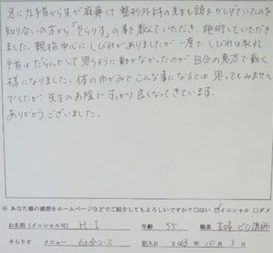 急に手首から先が麻痺して整形外科の先生も頭をかしげていたのを
知り合いの方から「そらりす」の事を教えていただき、施術していただき
ました。親指中心にしびれがありましたが一度でしびれは取れ、
手首はだらんとして思うように動かなかったのが自分の意志で動く
様になりました。体のゆがみでこんな事になるとは思ってもみません
でしたが先生のお陰ですっかり良くなってきています。
ありがとうございました。
※ あなた様の感想をホームページなどでご紹介してもよろしいですか？ □はい □イニシャル □ダメ
お名前（イニシャル可） H・I 年齢 55 職業 ピン講師
そらりす メニュー 60分コース 記入日 年 10月 3日